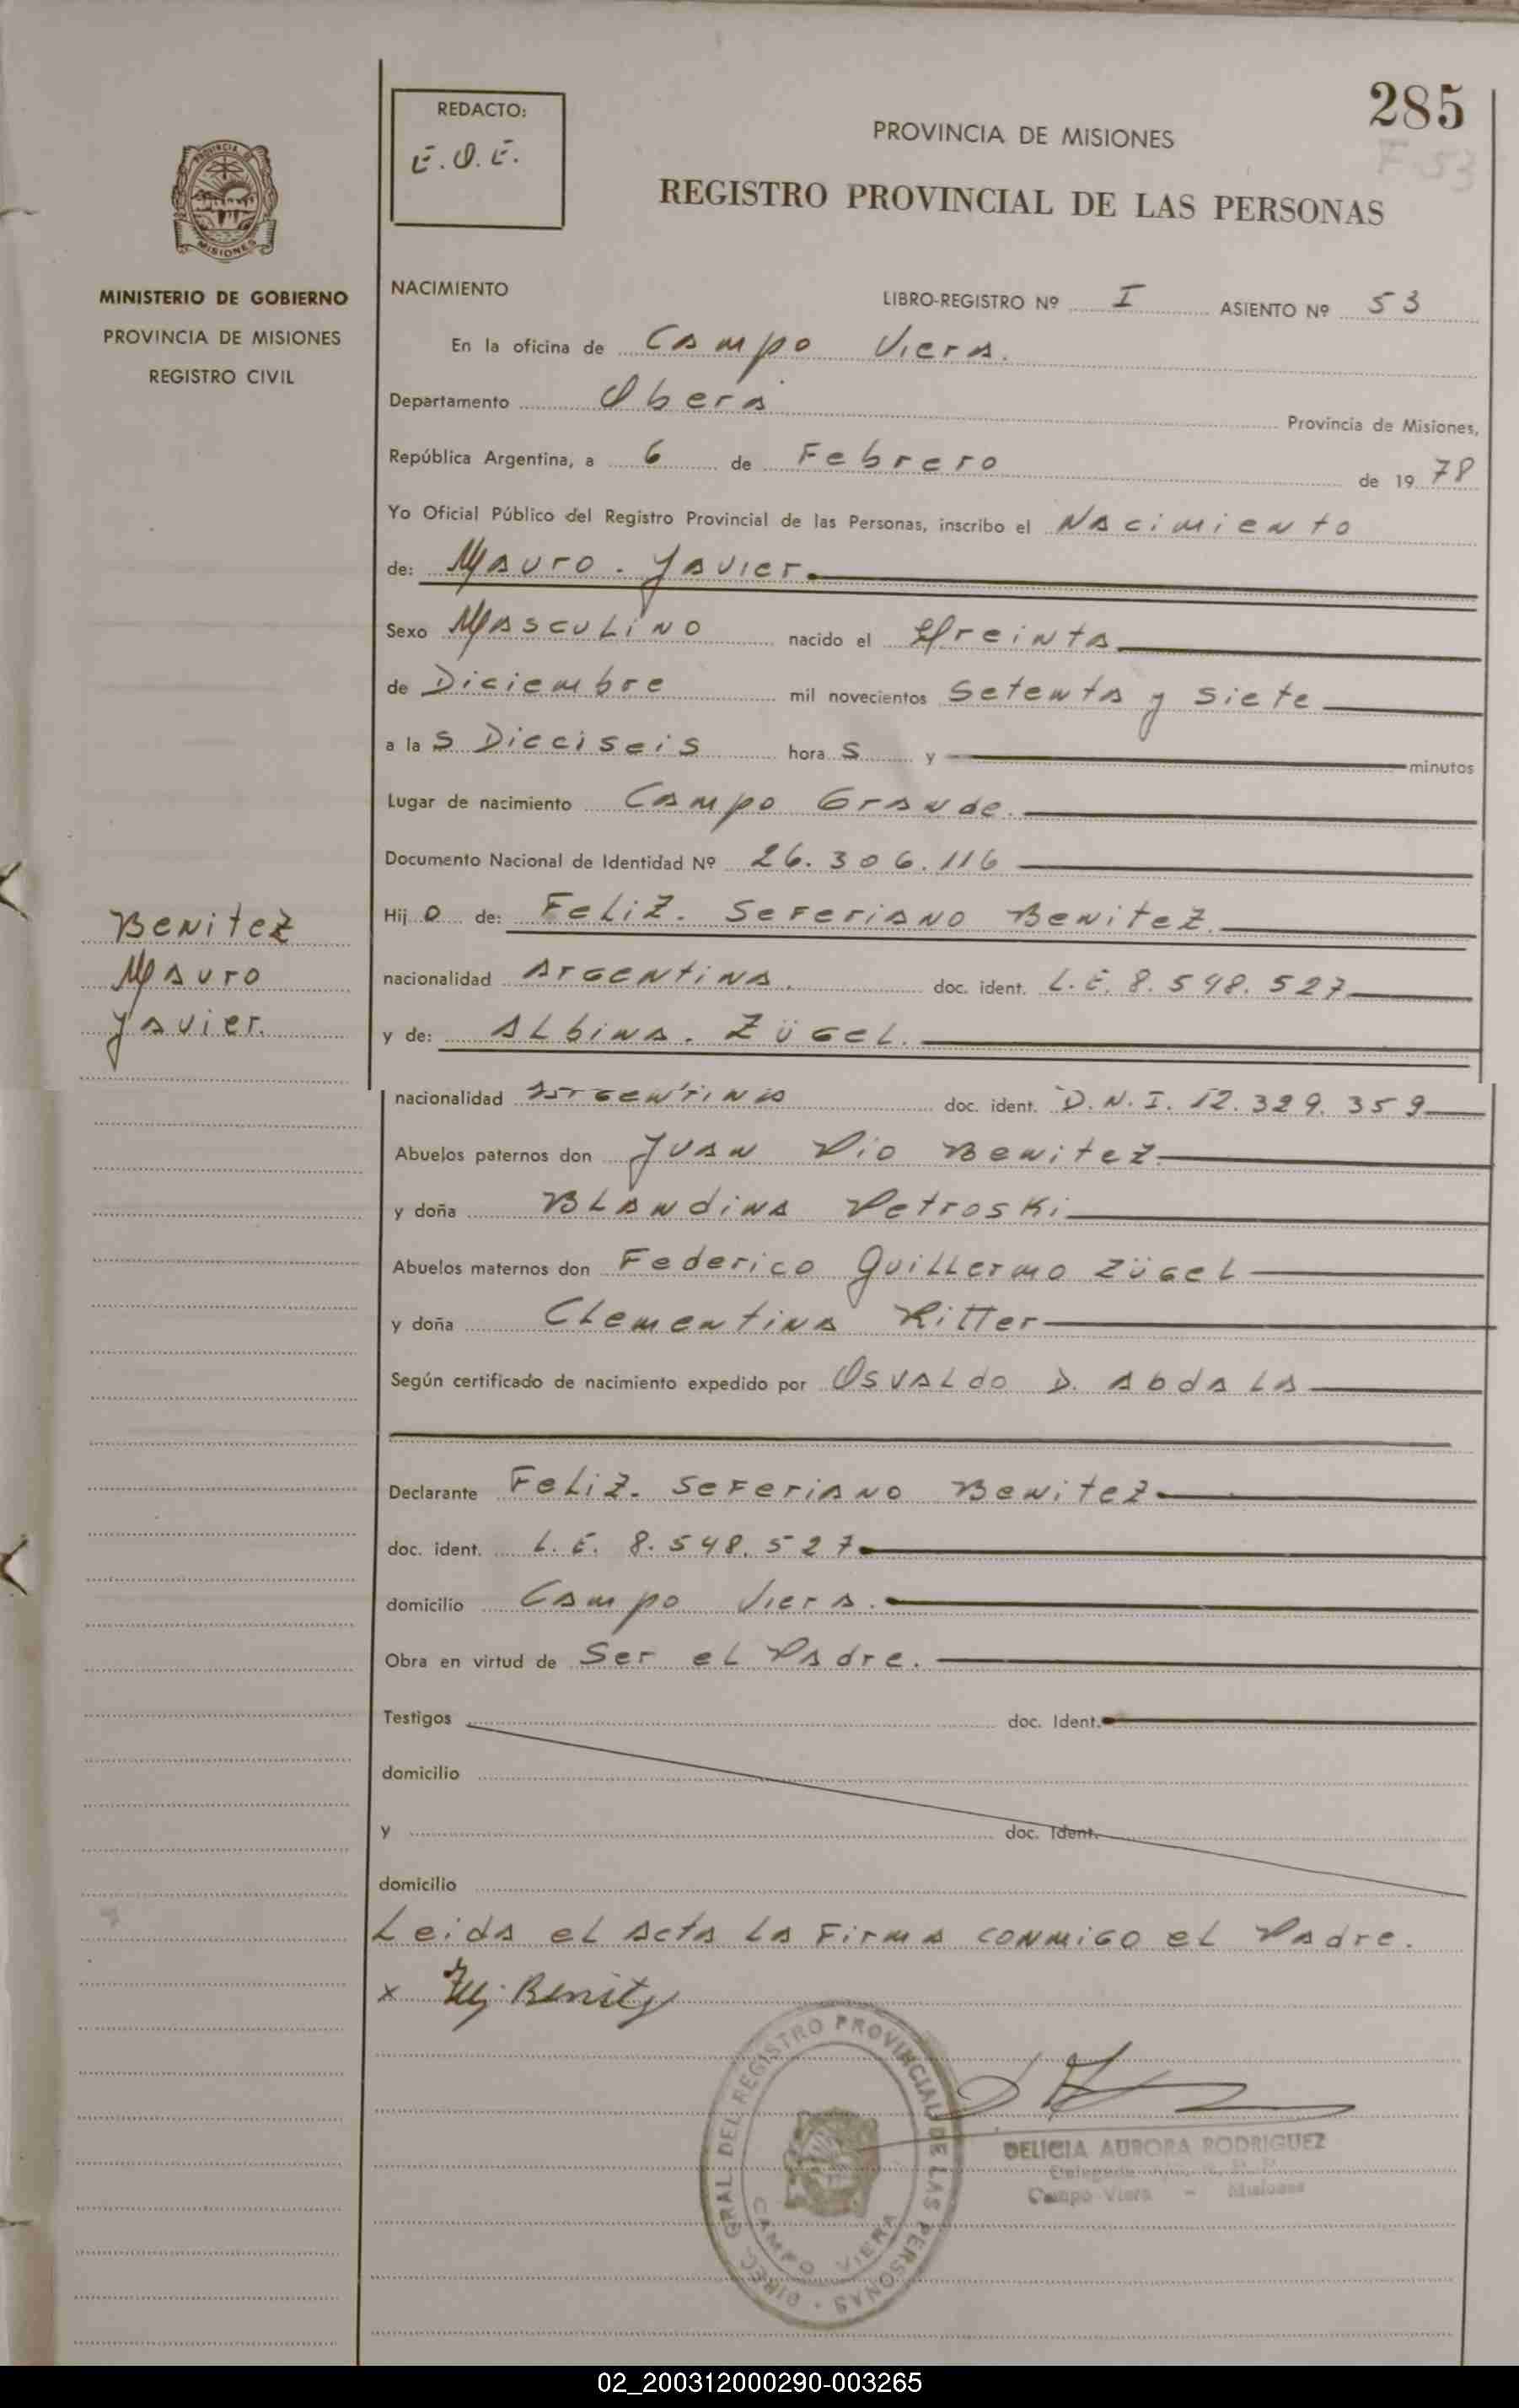 285
F-53
REDACTO:
E.O.E.
PROVINCIA DE MISIONES
REGISTRO PROVINCIAL DE LAS PERSONAS
PROVINCIA DE
MISIONES
MINISTERIO DE GOBIERNO
PROVINCIA DE MISIONES
REGISTRO CIVIL
NACIMIENTO LIBRO-REGISTRO Nº I ASIENTO Nº 53
En la oficina de Campo Viera.
Departamento Oberá Provincia de Misiones,
República Argentina, a 6 de Febrero de 1978
Yo Oficial Público del Registro Provincial de las Personas, inscribo el Nacimiento
de: Mauro. Javier.
Sexo Masculino nacido el treinta
de Diciembre mil novecientos Setenta y siete
a las Dieciseis horas y minutos
Lugar de nacimiento Campo Grande.
Documento Nacional de Identidad Nº 26.306.116
Benitez
Mauro
Javier.
Hijo de: Feliz. Seferiano Benitez.
nacionalidad Argentina. doc. ident. L.E. 8.548.527
y de: Albina. Zügel.
nacionalidad Argentina doc. ident. D.N.I. 12.329.359
Abuelos paternos don Juan Pio Benitez
y doña Blandina Petroski
Abuelos maternos don Federico Guillermo Zügel
y doña Clementina Ritter
Según certificado de nacimiento expedido por Osvaldo D. Abdala
Declarante Feliz. Seferiano Benitez
doc. ident. L.E. 8.548.527
domicilio Campo Viera.
Obra en virtud de Ser el Padre.
Testigos doc. Ident.
domicilio
y doc. Ident.
domicilio
Leida el acta la Firma conmigo el Padre.
x Benitez
DIREC. GRAL. DEL REGISTRO PROVINCIAL DE LAS PERSONAS
CAMPO VIERA
DELICIA AURORA RODRIGUEZ
Campo Viera - Misiones
02_200312000290-003265